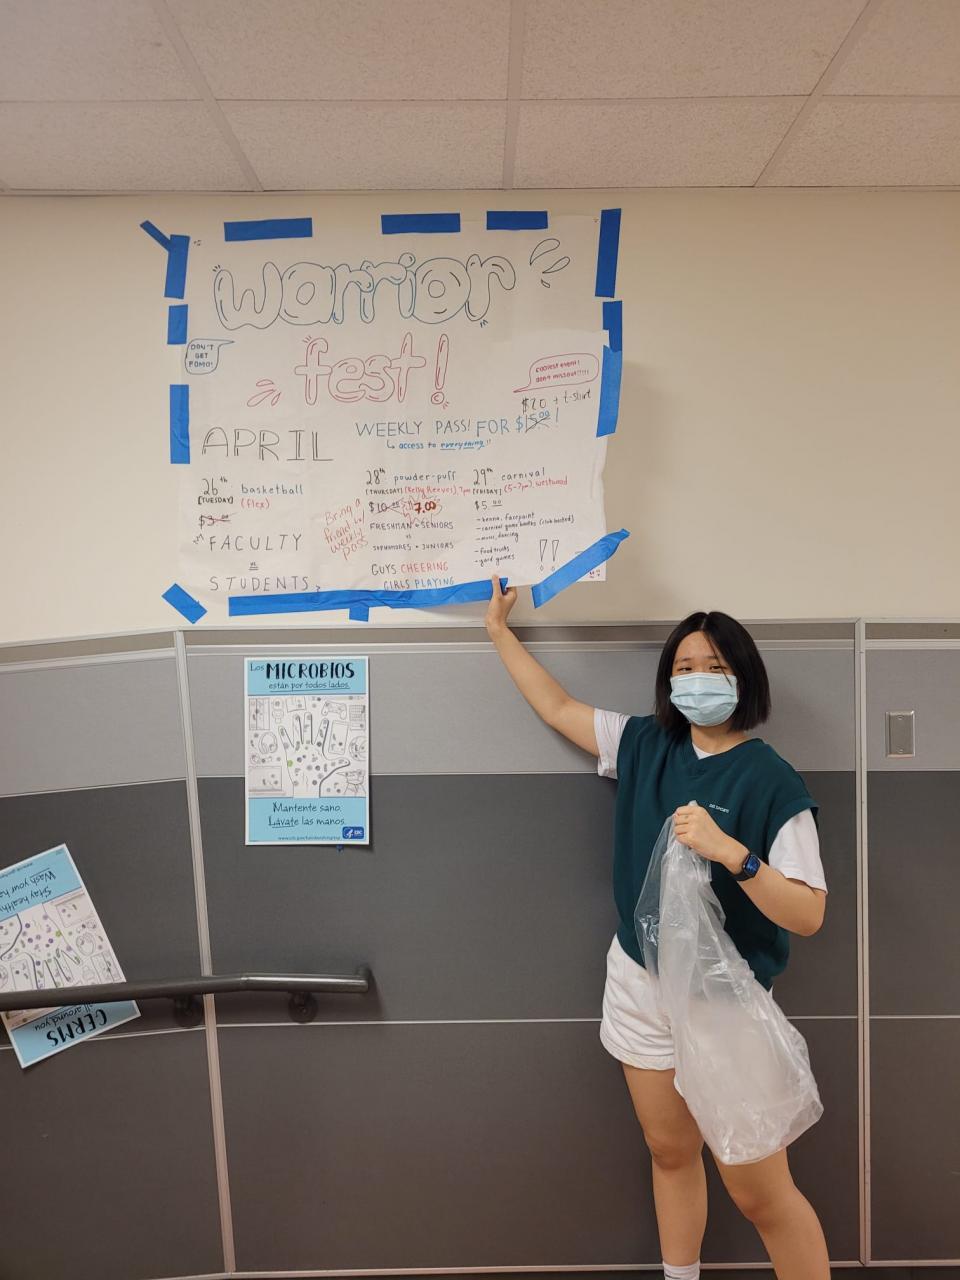 warrior
fest!
DON'T
GET
FOMO!
coolest event!
don't miss out!!!!!
$20 + t-shirt
WEEKLY PASS! FOR $15.00!
access to everything!!
APRIL
26th basketball
[TUESDAY] (flex)
$3.00
FACULTY
vs
STUDENTS
Bring a
friend w/
weekly
pass
28th powder-puff
[THURSDAY] (Kelly Reeves), 7pm
$10.00 7.00
FRESHMAN + SENIORS
vs
SOPHOMORES + JUNIORS
GUYS CHEERING
GIRLS PLAYING
29th carnival
[FRIDAY] (5-7pm), westwood
$5.00
- henna, facepaint
- carnival game booths (club hosted)
- music, dancing
- food trucks
- yard games
!!
Los MICROBIOS
están por todos lados.
Mantente sano.
Lávate las manos.
CDC
GERMS
all around you
Stay healthy
Wash your ha